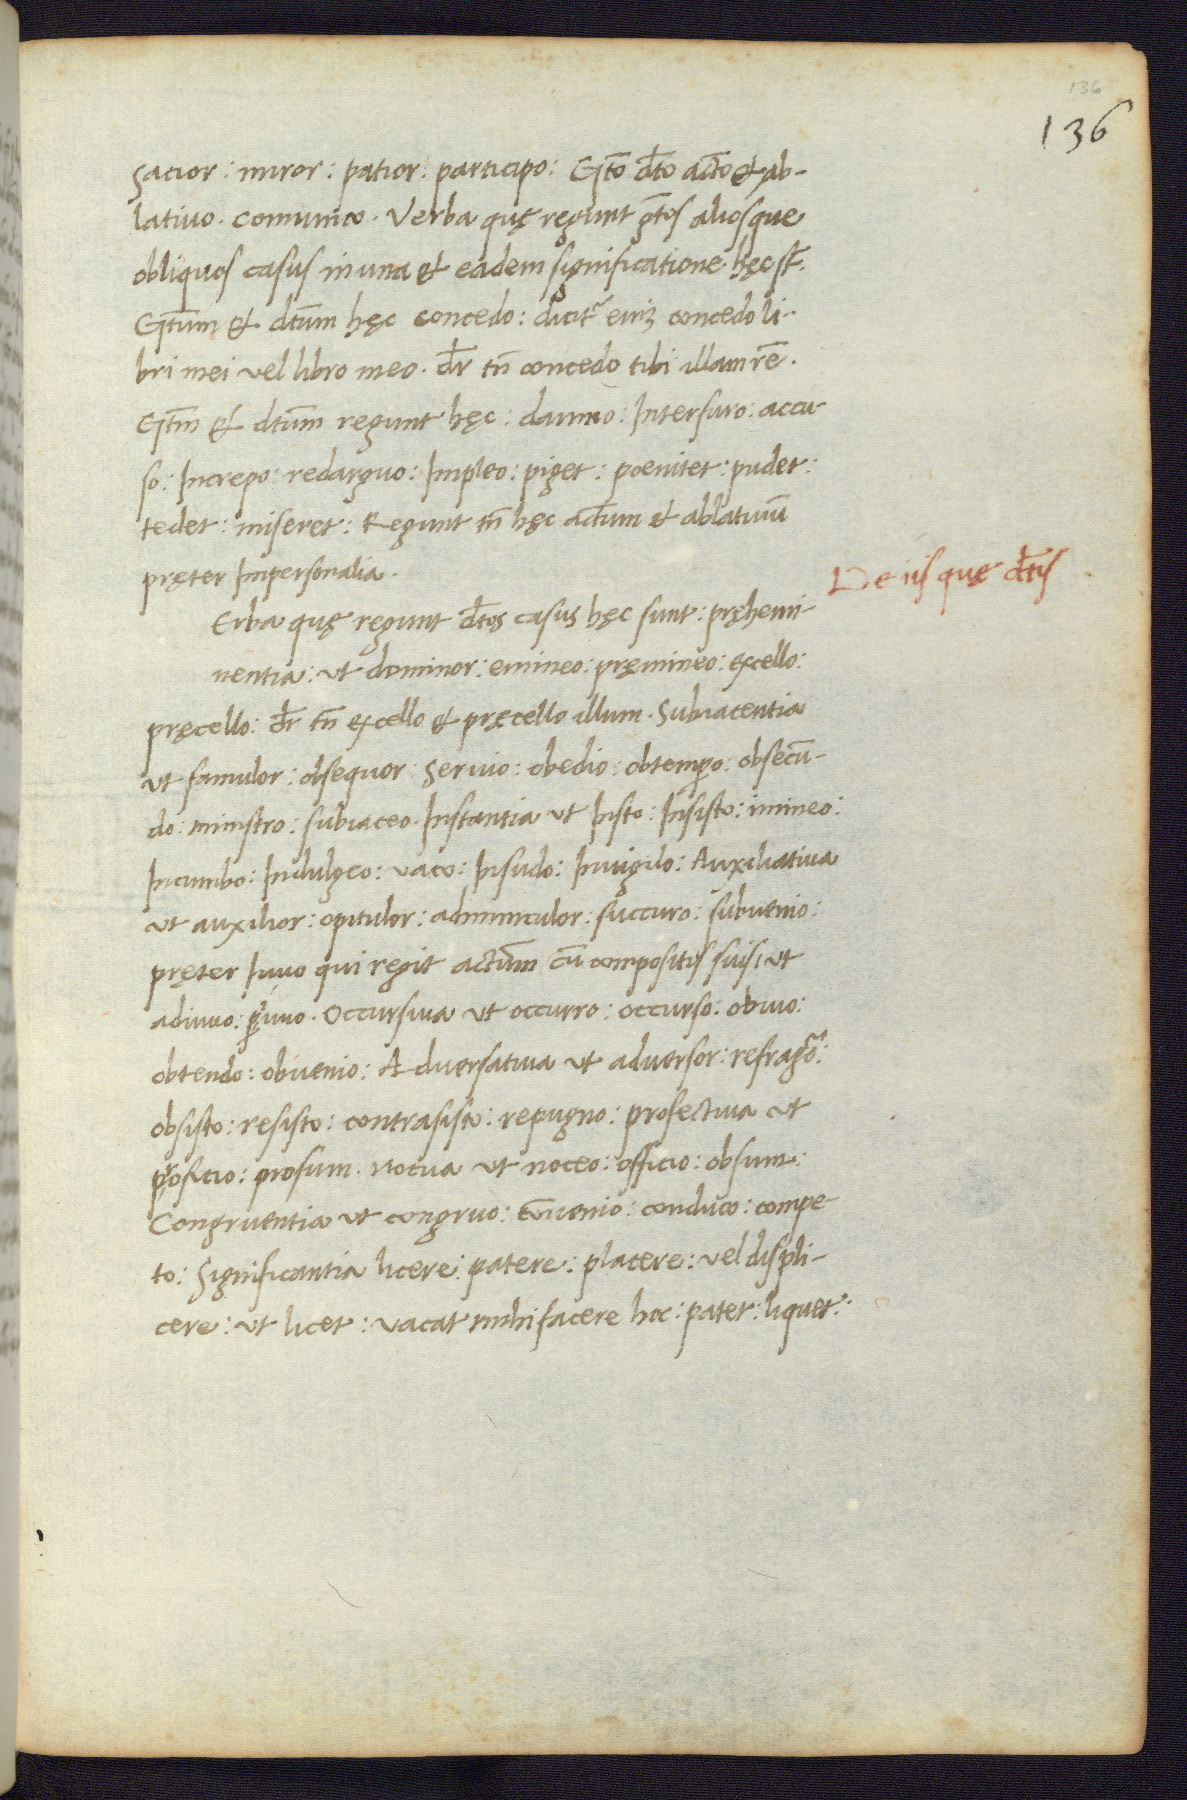 136
136
sacior: miror: patior: participo: Gto᷈ dt̄o act̄o & ab-
lativo. comunico. Verba quę regunt gt̄os aliosque
obliquos casus in una & eadem significatione hęc st̄.
Gt̄um & dt̄um hęc concedo: dicit᷑ eniꝫ concedo li-
bri mei vel libro meo. dr̄ tn̄ concedo tibi illam rē.
Gt̄m & dt̄um regunt hęc: damno: Interfuro: accu-
so: Increpo: redarguo: Impleo: piget: poenitet: pudet:
tedet: miseret: Regunt tn̄ hęc act̄um & ablativū
pręter Impersonalia.
De iis quę dt̄is
Erba quę regunt dt̄os casus hęc sunt: pręhemi-
nentia: ut dominor: emineo: pręmineo: excello:
pręcello: dr̄ tn̄ excello & pręcello illum. Subiacentia
ut famulor: obsequor: servio: obedio: obtemꝑo: obsecū-
do: ministro: subiaceo. Instantia ut Insto: Insisto: imineo:
Incumbo: Indulgeo: vaco: Insudo: Invigilo: Auxiliativa
ut auxilior: opitulor: adminiculor: succuro: subvenio:
pręter Iuvo qui regit act̄um cū compositis suis: ut
adiuvo: ꝑiuvo. Occursiva ut occurro: occurso: obvio:
obtendo: obvenio: Adversativa ut adversor: refragor:
obsisto: resisto: contrasisto: repugno: profectiva ut
proficio: prosum. Nociva ut noceo: officio: obsum:
Congruentia ut congruo: cōvenio: conduco: compe-
to: Significantia licere: patere: placere: vel displi-
cere: ut licet: vacat mihi facere hoc: patet: liquet: